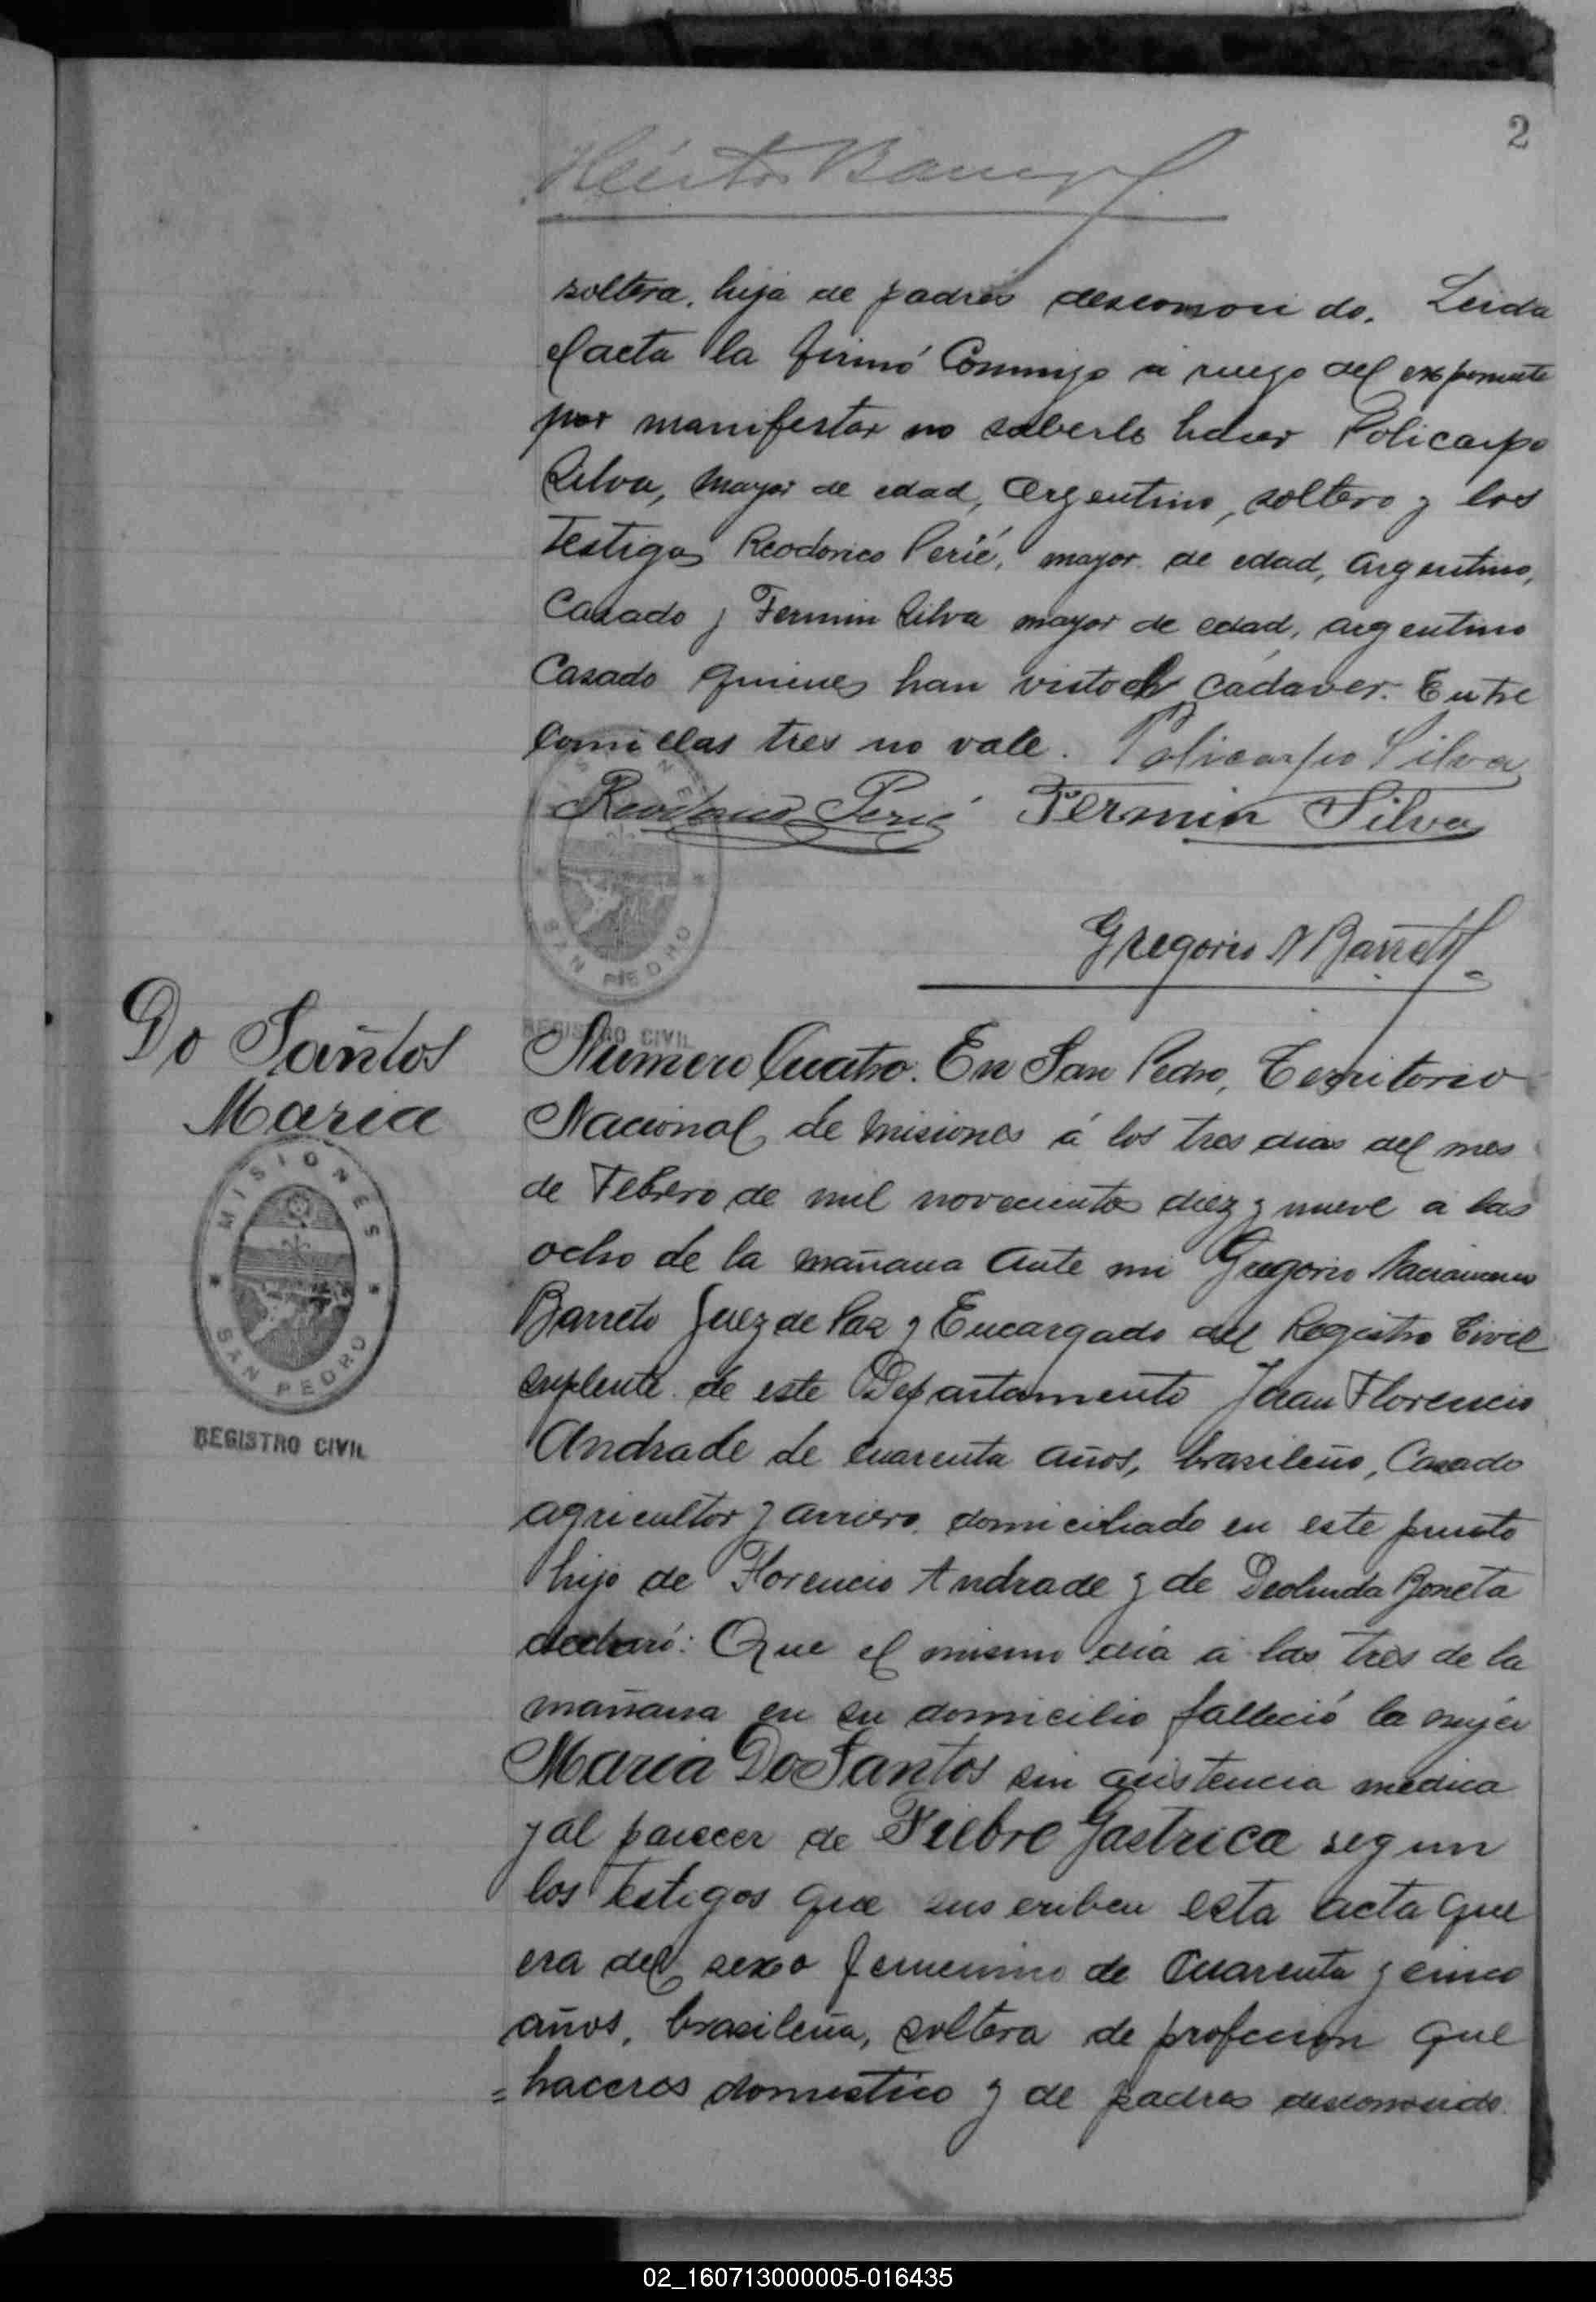 2
Héctor Barreyro
soltera, hija de padres desconocido. Leida
el acta la firmó Conmigo a ruego del exponente
por manifestar no saberlo hacer Policarpo
Silva, mayor de edad, Argentino, soltero y los
Testigos Reodorico Perié, mayor de edad, argentino,
Casado y Fermin Silva mayor de edad, argentino
Casado quienes han visto el cadaver. Entre
comillas tres no vale. Policarpo Silva
Reodorico Perié Fermin Silva
MISIONES
SAN PEDRO
REGISTRO CIVIL
Gregorio N Barreto
Do Santos
Maria
MISIONES
SAN PEDRO
REGISTRO CIVIL
Numero Cuatro. En San Pedro, Territorio
Nacional de Misiones á los tres dias del mes
de Febrero de mil novecientos diez y nueve a las
ocho de la mañana Ante mi Gregorio
Barreto Juez de Paz y Encargado del Registro Civil
suplente de este Departamento Juan Florencio
Andrade de cuarenta años, brasileño, Casado
agricultor y arriero, domiciliado en este punto
hijo de Florencio Andrade y de Deolinda Boneta
declaró: Que el mismo dia a las tres de la
mañana en su domicilio falleció la mujer
Maria Do Santos sin asistencia medica
y al parecer de Fiebre Gastrica segun
los testigos que suscriben esta acta que
era del sexo femenino de cuarenta y cinco
años, brasileña, soltera de profecion que
=haceres domestico y de padres desconocido.
02_160713000005-016435